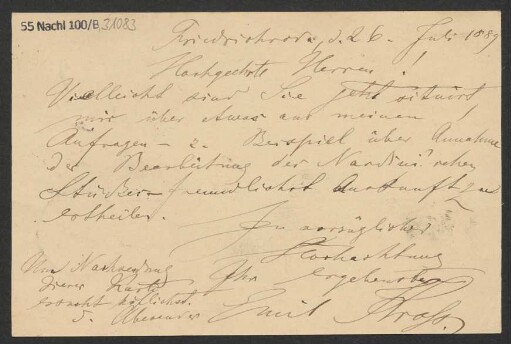 55 Nachl 100/B,31083
Friedrichroda, d. 26. Juli 1889
Hochgeehrte Herren!
Vielleicht sind Sie jetzt situirt
mir über etwas aus meinen
Anfragen – z. Beispiel über Annahme
der Bearbeitung der Nardini'schen
Stücke – freundlichst Auskunft zu
ertheilen.
In vorzüglicher
Hochachtung
Ihr ergebenster
Emil Kross.
Um Nachsendung
dieser Karte
ersucht höflichst
d. Absender